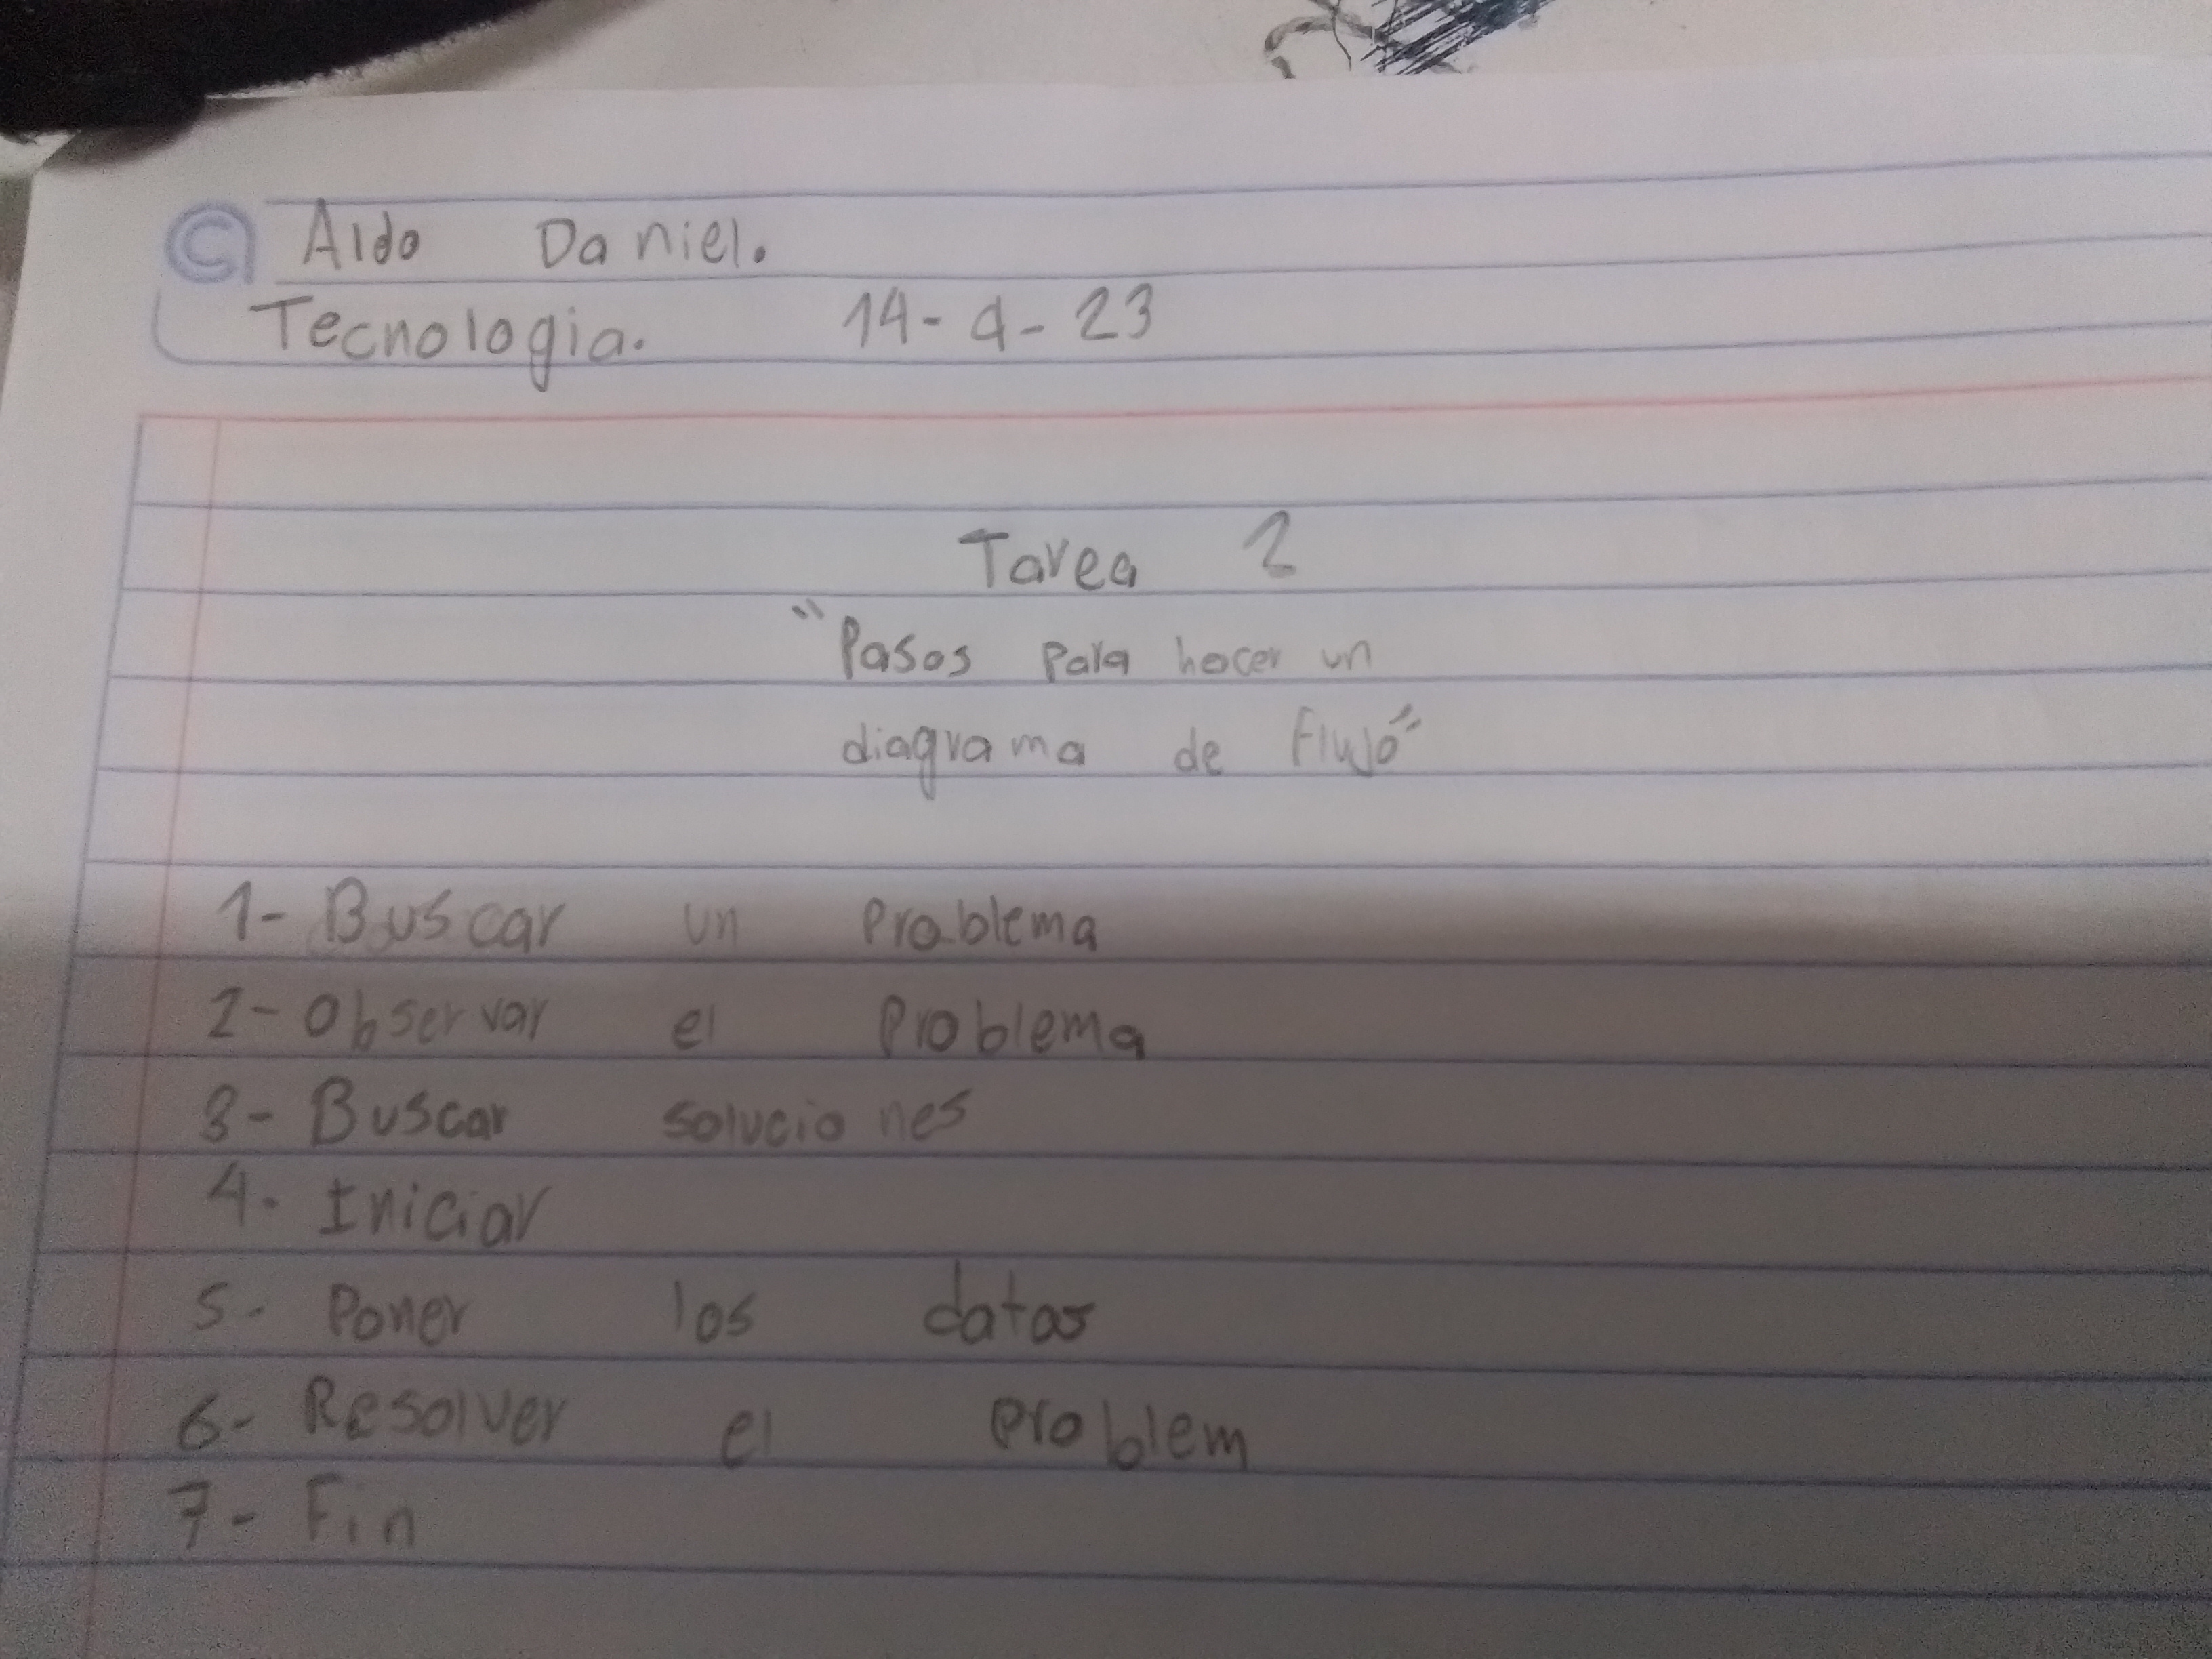 Aldo Daniel.
Tecnologia. 14-4-23
Tarea 2
"Pasos para hacer un
diagrama de Flujo"
1- Buscar un Problema
2- Observar el Problema
3- Buscar soluciones
4. Iniciar
5. Poner los datos
6- Resolver el problem
7- Fin